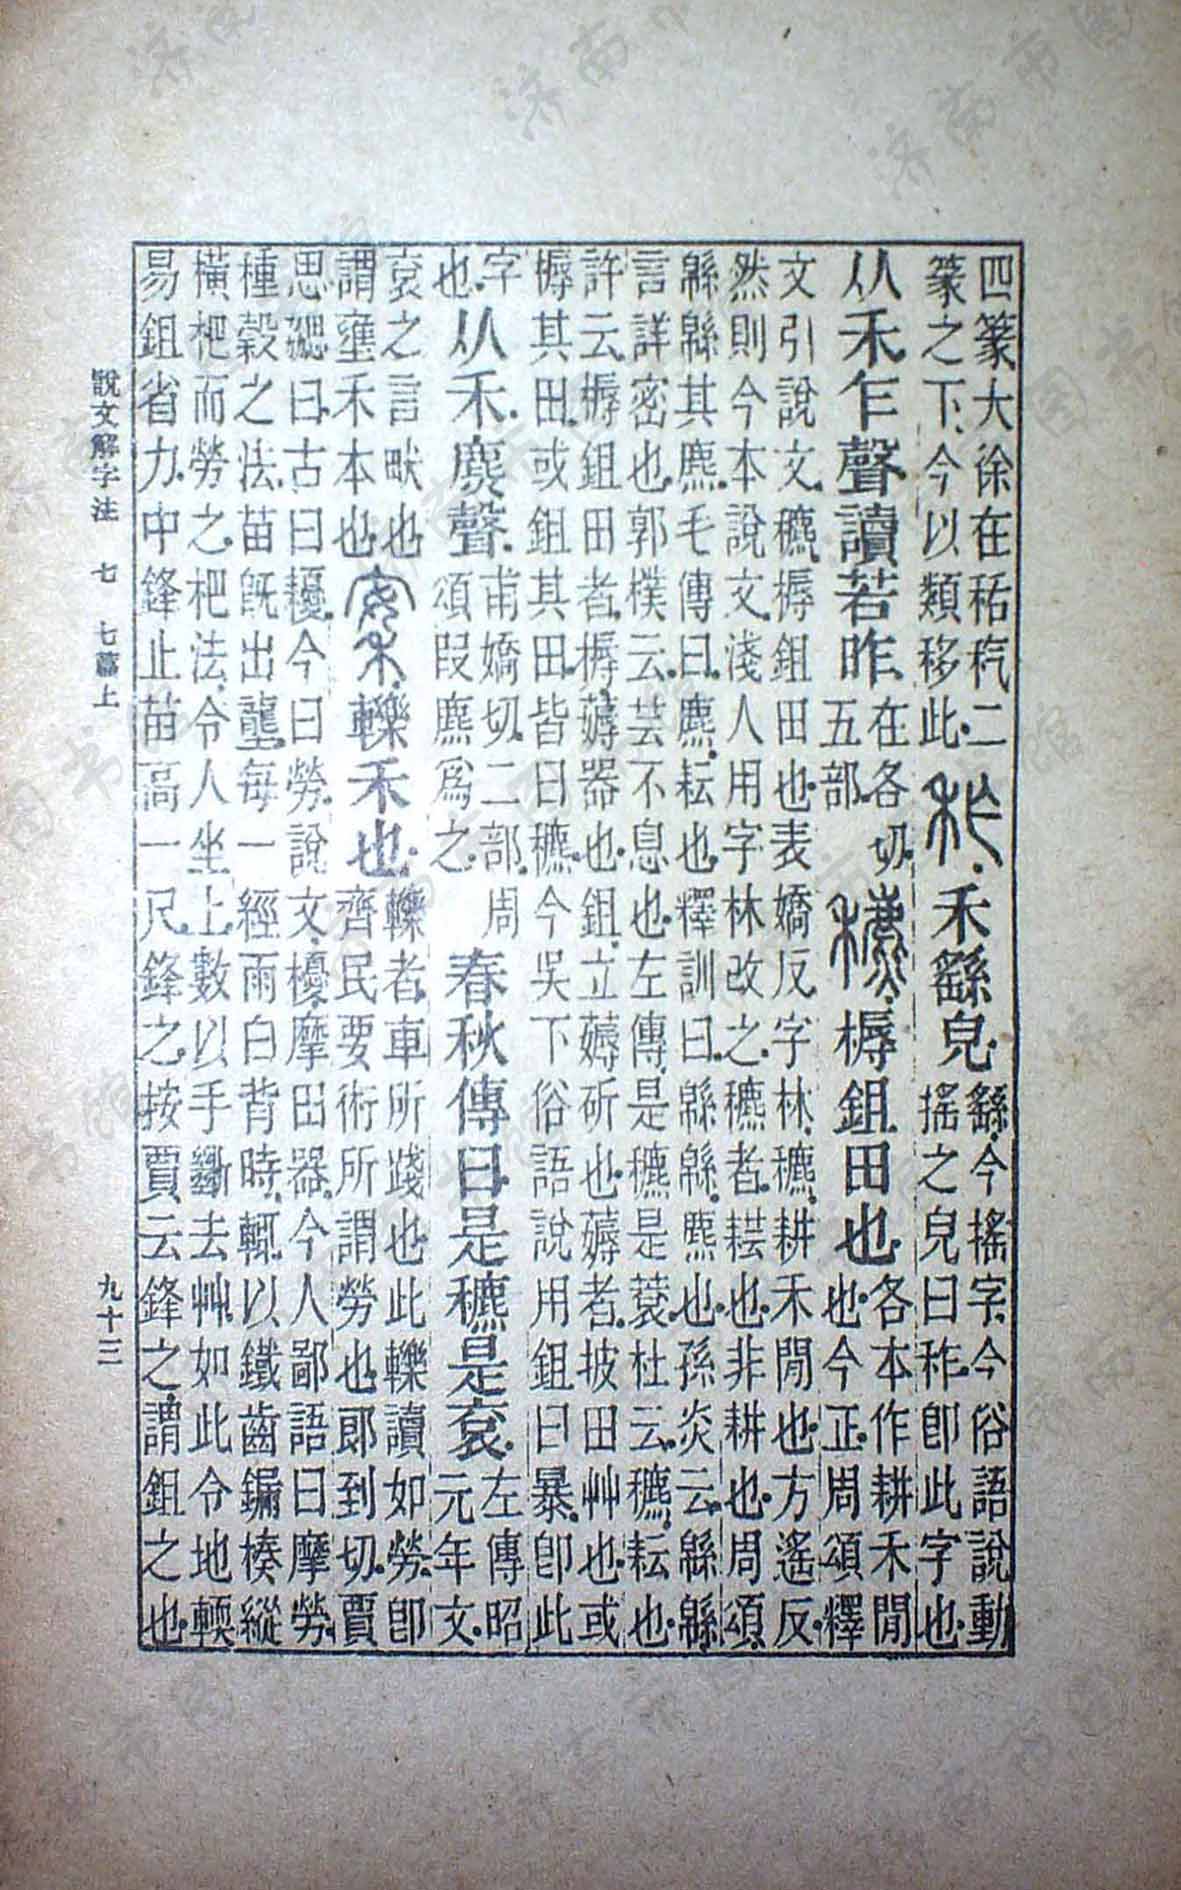 四篆、大徐在秳二
篆之下、今以類移此。
秨。禾䌛皃。
䌛、今搖字、今俗語說動
搖之皃曰秨卽此字也。
从禾乍聲讀若昨
在各切。
五部。
穮。槈鉏田也。
各本作耕禾閒
也、今正、周頌釋
文引說文穮、槈鉏田也、表嬌反。字林、穮、耕禾閒也、方遙反。
然則今本說文、淺人用字林改之、穮者、耘也、非耕也。周頌、
緜緜其麃。毛傳曰。麃、耘也。釋訓曰。緜緜、麃也。孫炎云。緜緜、
言詳密也。郭樸云。芸不息也。左傳、是穮是蓘。杜云。穮、耘也。
許云槈鉏田者、槈、薅器也。鉏、立薅斫也。薅者、披田艸也。或
槈其田、或鉏其田、皆曰穮。今吳下俗語說用鉏曰暴。卽此
字
也。
从禾麃聲。
甫嬌切。二部。周
頌叚麃爲之。
春秋傳曰是穮是袞。
左傳昭
元年文。
袞之言畎也
謂壅禾本也。
案。轢禾也。
轢者、車所踐也此轢讀如勞。卽
齊民要術所謂勞也、郞到切。賈
思勰曰、古曰耰、今曰勞。說文、櫌、摩田器。今人鄙語曰摩勞。
種穀之法、苗旣出壟、每一經雨白背時、輒以鐵齒鎘楱縱
橫杷而勞之。杷法、令人坐上、數以手斷去艸。如此令地輭
易鉏省力。中鋒止苗高一尺、鋒之。按賈云鋒之謂鉏之也。
說文解字注 七 七篇上
九十三